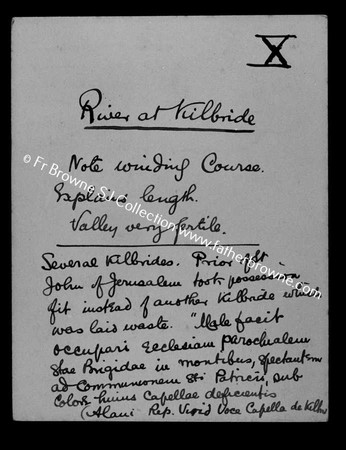 X
River at Kilbride
Note winding Course.
Explains length.
Valley very fertile.
Several Kilbrides. Prior of St
John of Jerusalem took possession
of it instead of another Kilbride which
was laid waste. "Male facit
occupari Ecclesiam parochialem
Stae Brigidae in montibus, spectantem
ad Communionem Sti Patricii, sub
Colore huius Capellae deficientis
(Alani Rep. Virid Voce Capella de Kilbr
© Fr Browne SJ Collection www.fatherbrowne.com